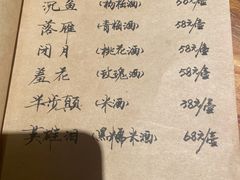 沉鱼 (杨梅酒) 58元/壶
落雁 (青梅酒) 58元/壶
闭月 (桃花酒) 58元/壶
羞花 (玫瑰酒) 58元/壶
半步颠 (米酒) 38元/壶
英雄泪 (黑糯米酒) 68元/壶